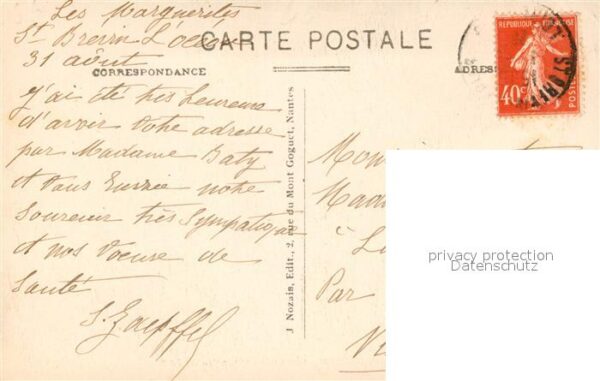 Les Marguerites
St Brevin L'Océan
31 août
CARTE POSTALE
CORRESPONDANCE
ADRES
REPUBLIQUE FRANÇAISE
40c
POSTES
J'ai été très heureuse
d'avoir votre adresse
par Madame Baty
et vous envoie notre
souvenir très sympatique
et nos voeux de
santé
S. Goepffel
J Nozais, Edit., 2, rue du Mont Goguet, Nantes
Mon
Mada
à L
Par
privacy protection
Datenschutz